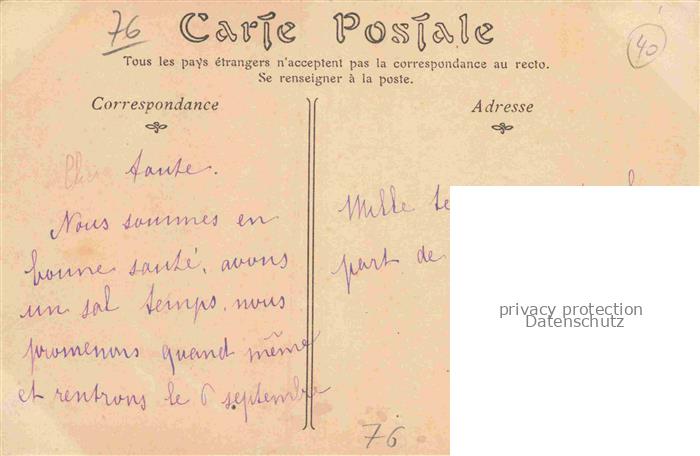 76
Carte Postale
40
Tous les pays étrangers n'acceptent pas la correspondance au recto.
Se renseigner à la poste.
Correspondance
Adresse
Chère tante.
Nous sommes en
bonne santé, avons
un sal temps, nous
promenons quand même
et rentrons le 6 septembre
Mille
part de
privacy protection
Datenschutz
76